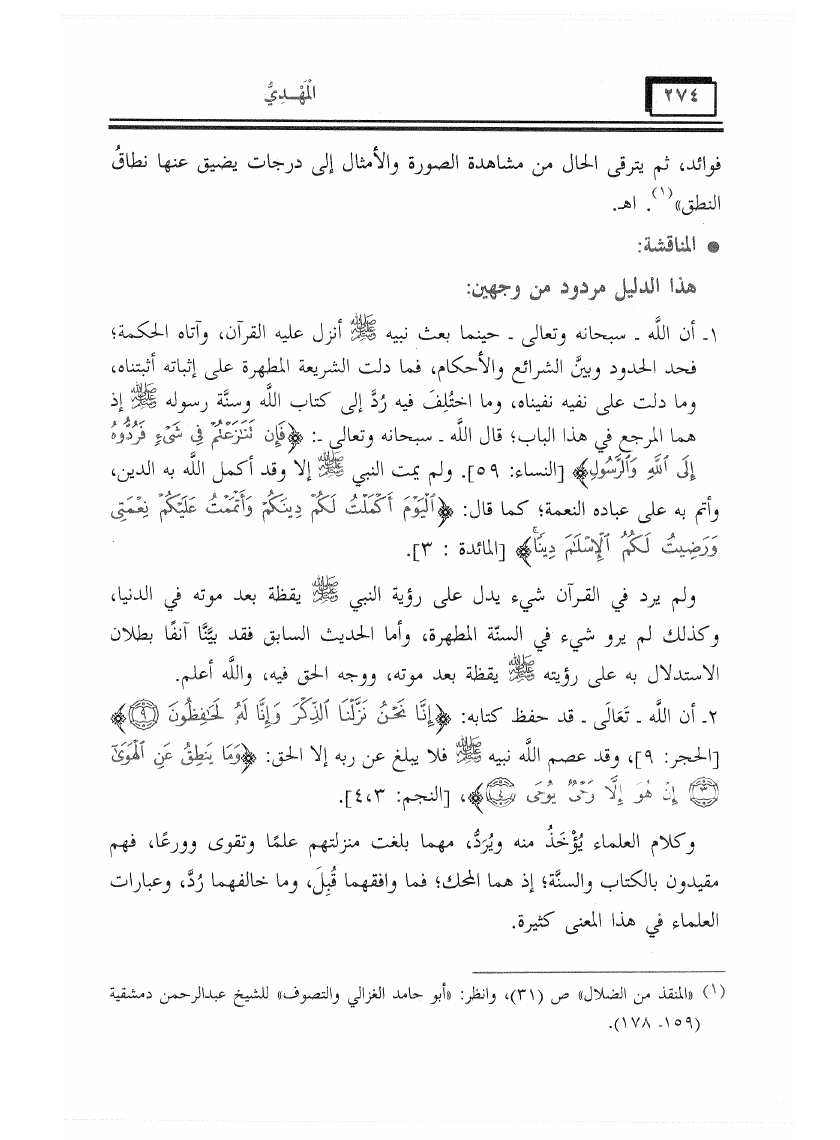 ٢٧٤
الْمَهْـدِيُّ
فوائد، ثم يترقى الحال من مشاهدة الصورة والأمثال إلى درجات يضيق عنها نطاقُ
النطق»(١). اهـ.
● المناقشة:
هذا الدليل مردود من وجهين:
١ـ أن اللَّه ـ سبحانه وتعالى ـ حينما بعث نبيه ﷺ أنزل عليه القرآن، وآتاه الحكمة؛
فحد الحدود وبيَّن الشرائع والأحكام، فما دلت الشريعة المطهرة على إثباته أثبتناه،
وما دلت على نفيه نفيناه، وما اختُلِفَ فيه رُدَّ إلى كتاب اللَّه وسنَّة رسوله ﷺ إذ
هما المرجع في هذا الباب؛ قال اللَّه ـ سبحانه وتعالى ـ: ﴿فَإِن تَنَٰزَعْتُمْ فِي شَيْءٍ فَرُدُّوهُ
إِلَى ٱللَّهِ وَٱلرَّسُولِ﴾ [النساء: ٥٩]. ولم يمت النبي ﷺ إلا وقد أكمل اللَّه به الدين،
وأتم به على عباده النعمة؛ كما قال: ﴿ٱلْيَوْمَ أَكْمَلْتُ لَكُمْ دِينَكُمْ وَأَتْمَمْتُ عَلَيْكُمْ نِعْمَتِى
وَرَضِيتُ لَكُمُ ٱلْإِسْلَٰمَ دِينًا﴾ [المائدة : ٣].
ولم يرد في القرآن شيء يدل على رؤية النبي ﷺ يقظة بعد موته في الدنيا،
وكذلك لم يرو شيء في السنّة المطهرة، وأما الحديث السابق فقد بيَّنَّا آنفًا بطلان
الاستدلال به على رؤيته ﷺ يقظة بعد موته، ووجه الحق فيه، واللَّه أعلم.
٢ـ أن اللَّه ـ تَعَالَى ـ قد حفظ كتابه: ﴿إِنَّا نَحْنُ نَزَّلْنَا ٱلذِّكْرَ وَإِنَّا لَهُۥ لَحَٰفِظُونَ ٩﴾
[الحجر: ٩]، وقد عصم اللَّه نبيه ﷺ فلا يبلغ عن ربه إلا الحق: ﴿وَمَا يَنطِقُ عَنِ ٱلْهَوَىٰٓ
٣ إِنْ هُوَ إِلَّا وَحْىٌ يُوحَىٰ ٤﴾، [النجم: ٤،٣].
وكلام العلماء يُؤْخَذُ منه ويُرَدُّ، مهما بلغت منزلتهم علمًا وتقوى وورعًا، فهم
مقيدون بالكتاب والسنَّة؛ إذ هما المحك؛ فما وافقهما قُبِلَ، وما خالفهما رُدَّ، وعبارات
العلماء في هذا المعنى كثيرة.
(١) «المنقذ من الضلال» ص (٣١)، وانظر: «أبو حامد الغزالي والتصوف» للشيخ عبدالرحمن دمشقية
(١٥٩ـ ١٧٨).